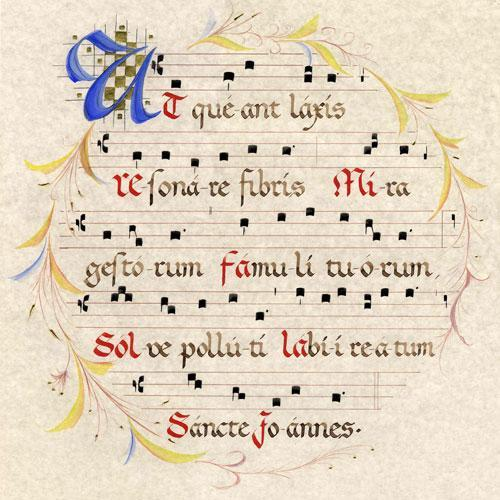 UT que-ant láxis
re soná-re fibris Mi-ra
gestó-rum Fámu-lí tu-ó-rum,
Sol-ve pollú-tí lábi-i re-a-tum
Sáncte Jo-ánnes.